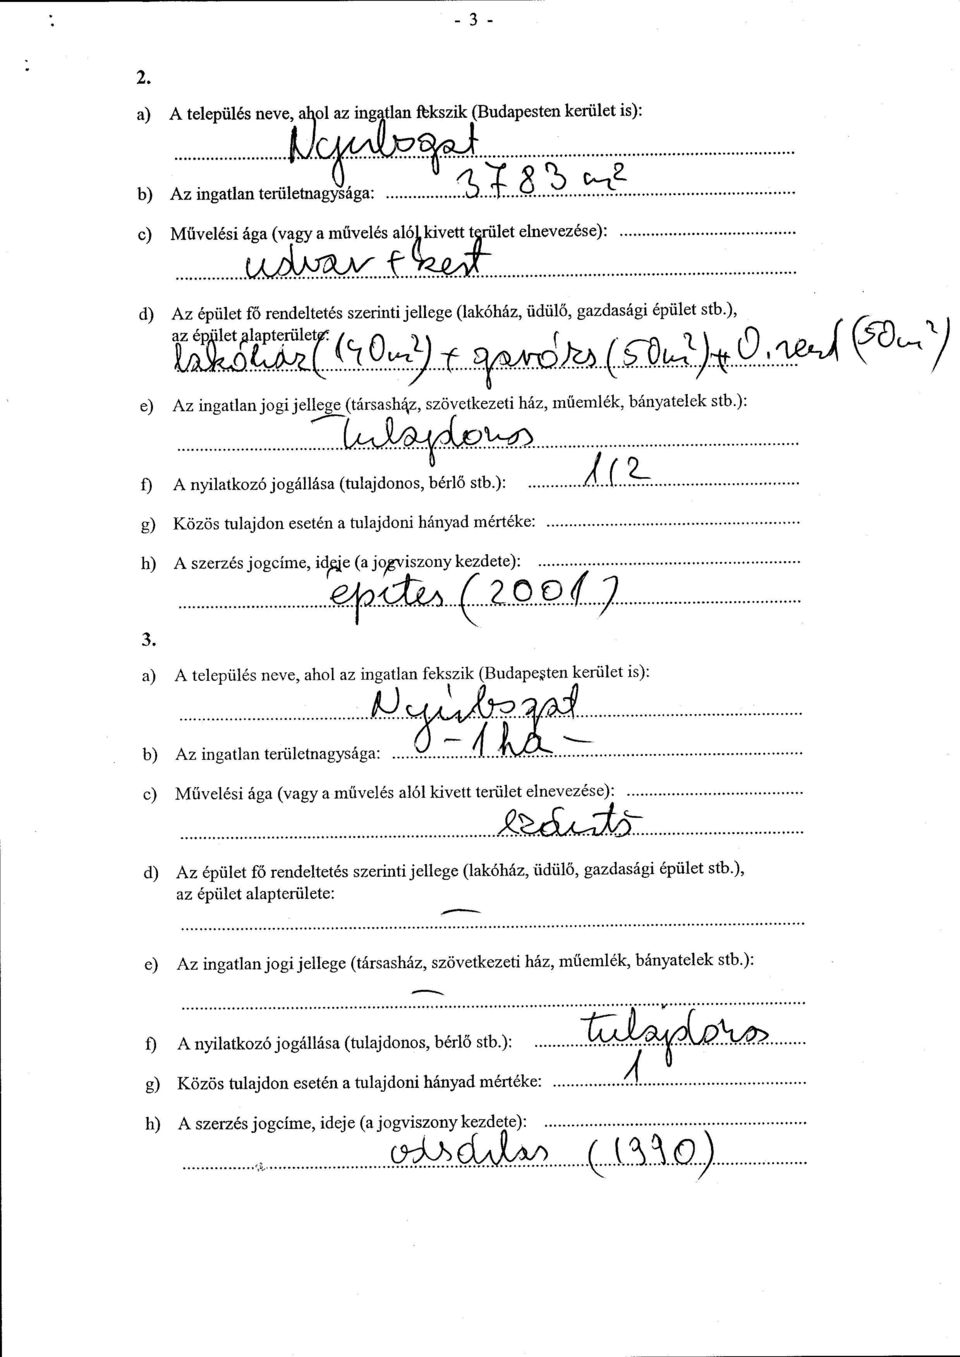 - 3 -
2.
a) A település neve, ahol az ingatlan fekszik (Budapesten kerület is):
Nyírbogát
b) Az ingatlan területnagysága: 3783 m2
c) Művelési ága (vagy a művelés alól kivett terület elnevezése):
udvar + kert
d) Az épület fő rendeltetés szerinti jellege (lakóház, üdülő, gazdasági épület stb.),
az épület alapterülete:
lakóház (140m2) + (50m2) + (50m2)
e) Az ingatlan jogi jellege (társasház, szövetkezeti ház, műemlék, bányatelek stb.):
tulajdonos
f) A nyilatkozó jogállása (tulajdonos, bérlő stb.): 1/2
g) Közös tulajdon esetén a tulajdoni hányad mértéke:
h) A szerzés jogcíme, ideje (a jogviszony kezdete):
építés (2001)
3.
a) A település neve, ahol az ingatlan fekszik (Budapesten kerület is):
Nyírbogát
b) Az ingatlan területnagysága: - 1 ha -
c) Művelési ága (vagy a művelés alól kivett terület elnevezése):
szántó
d) Az épület fő rendeltetés szerinti jellege (lakóház, üdülő, gazdasági épület stb.),
az épület alapterülete:
-
e) Az ingatlan jogi jellege (társasház, szövetkezeti ház, műemlék, bányatelek stb.):
-
f) A nyilatkozó jogállása (tulajdonos, bérlő stb.): tulajdonos
g) Közös tulajdon esetén a tulajdoni hányad mértéke: 1
h) A szerzés jogcíme, ideje (a jogviszony kezdete):
(1990)